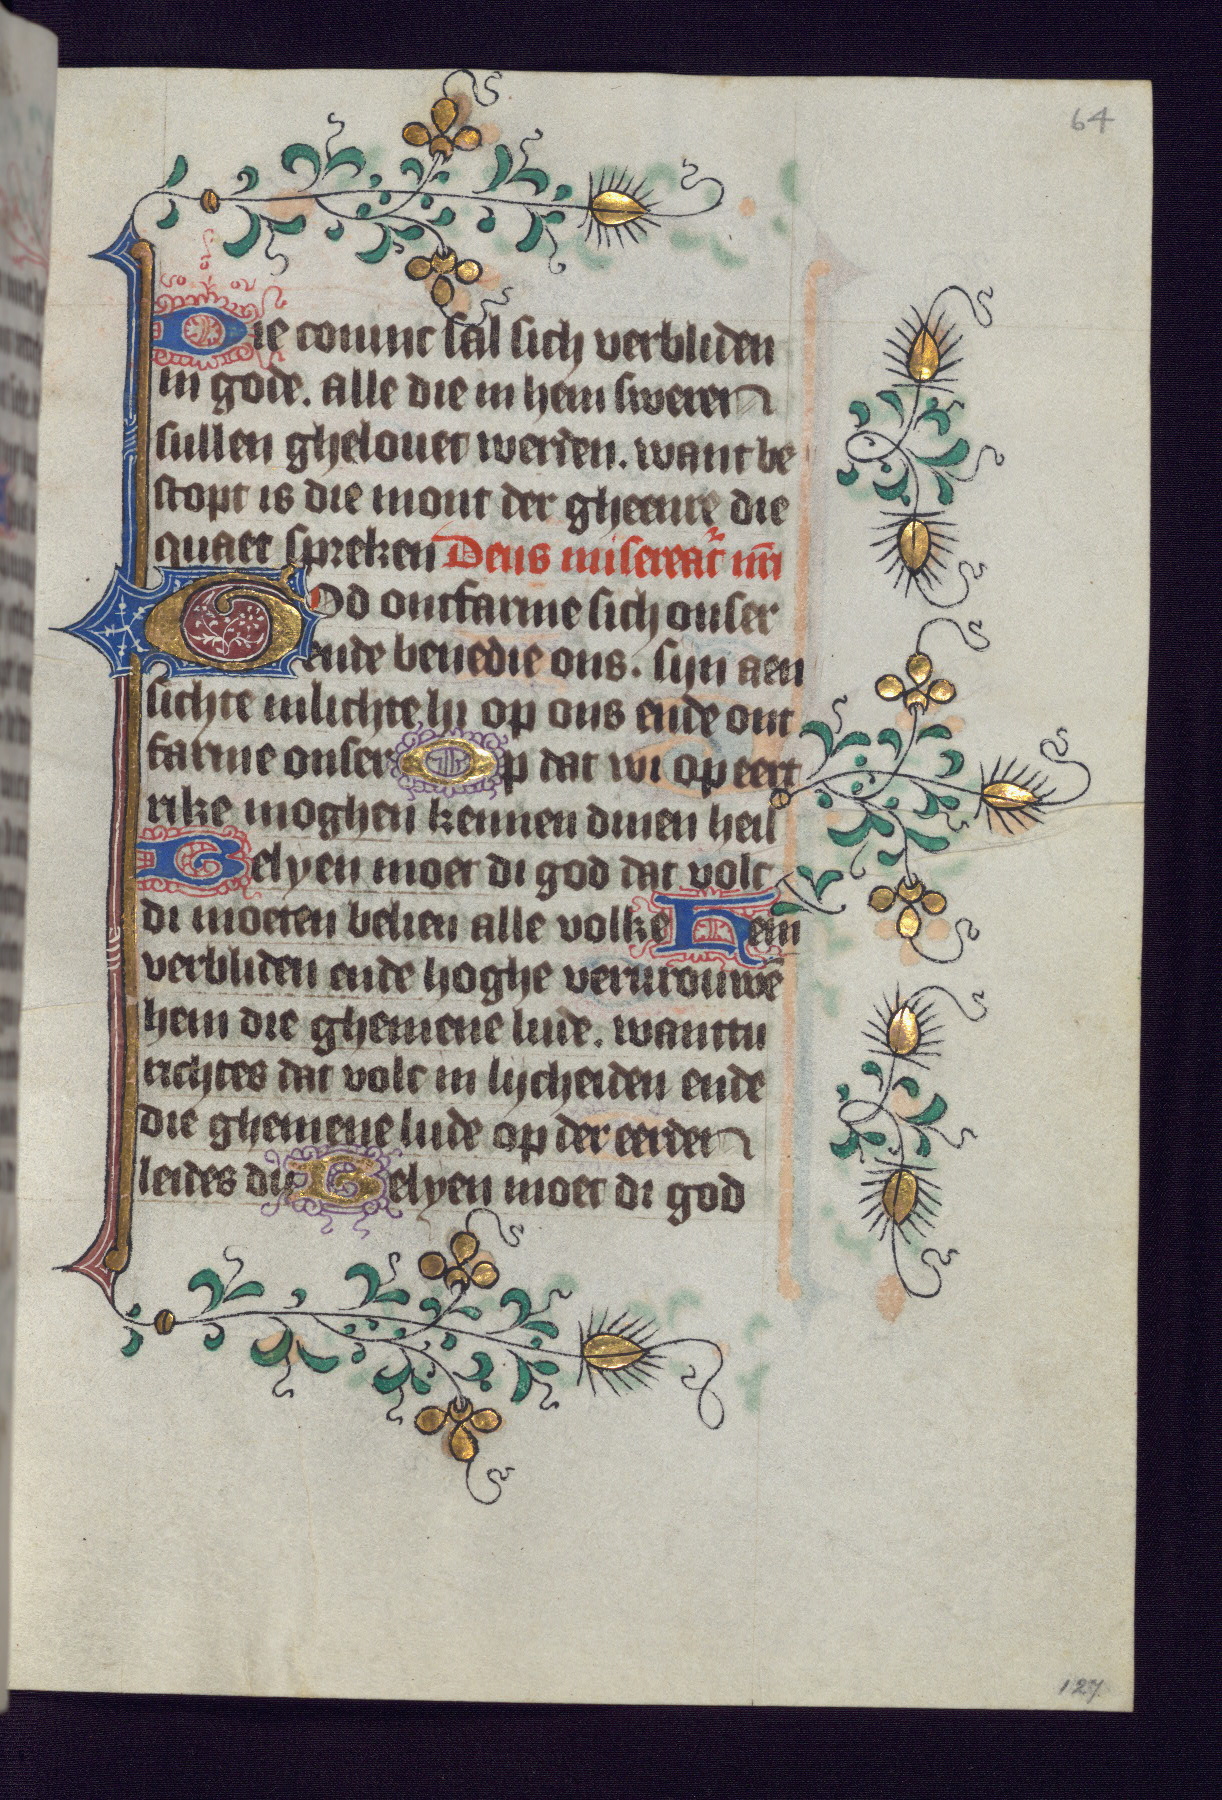 64
Die coninc sal sich verbliden
in gode. alle die in hem sweren
sullen ghelouet werden. want be
stopt is die mont der gheenre die
quaet spreken Deus misereat̃ nr̃i
God ontfarme sich onser
ende benedie ons. sijn aen
sichte inlichte hi op ons ende ont
farme onser Op dat wi op eert
rike moghen kennen dinen heil
Belyen moet di god dat volc
di moeten belien alle volke Hem
verbliden ende hoghe vervrouwē
hem die ghemene lude. wanttu
richtes dat volc in lijcheiden ende
die ghemene lude op der eerden
leides du Belyen moet di god
127